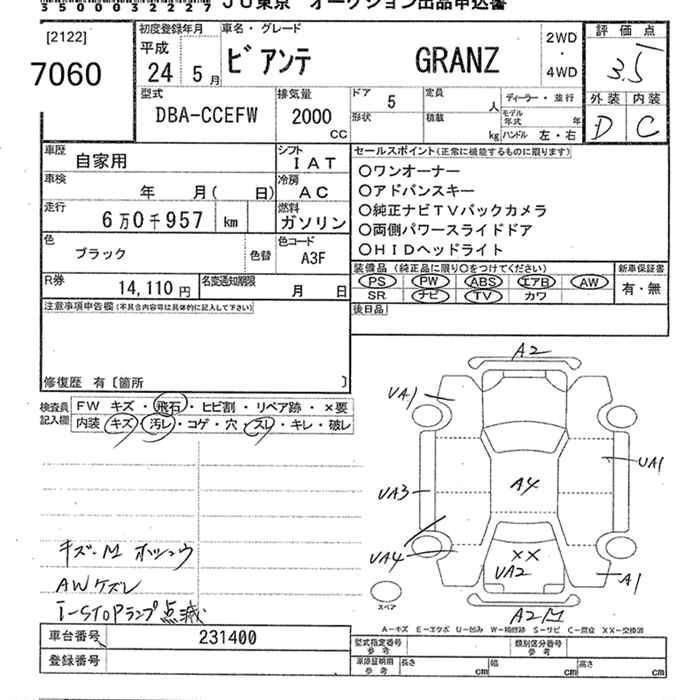 35000322227 JU東京 オークション出品申込書
[2122]
7060
初度登録年月
平成
24 5月
車名・グレード
ビアンテ GRANZ
2WD
・
4WD
評価点
3.5
外装 内装
D C
型式
DBA-CCEFW
排気量
2000
CC
ドア 5
定員 人
形状
積載 kg
ディーラー・並行
モデル年式 年
ハンドル 左・右
車歴 自家用
シフト IAT
車検 年 月( 日)
冷房 AC
走行 6万0千957 km
燃料 ガソリン
色 ブラック
色替
色コード A3F
R券 14,110円
名変通知期限 月 日
セールスポイント(正常に機能するものに限ります)
○ワンオーナー
○アドバンスキー
○純正ナビTVバックカメラ
○両側パワースライドドア
○HIDヘッドライト
装備品(純正品に限り○をつけてください)
PS PW ABS エアB AW
SR ナビ TV カワ
新車保証書
有・無
後日品
注意事項申告欄(不具合内容等は具体的に記入して下さい)
修復歴 有〔箇所 〕
検査員記入欄
FW キズ・飛石・ヒビ割・リペア跡・×要
内装 キズ・汚レ・コゲ・穴・スレ・キレ・破レ
A2
UA1
UA1
A4
UA3
UA4
××
UA2
A1
スペア
A2M
キズ・M ホツコウ
AWケズレ
I-STOPランプ点滅
A-キズ E-エクボ U-凹み W-補修跡 S-サビ C-腐食 XX-交換済
車台番号 231400
登録番号
型式指定番号 参考
類別区分番号 参考
車庫証明用 参考
長さ cm
幅 cm
高さ cm